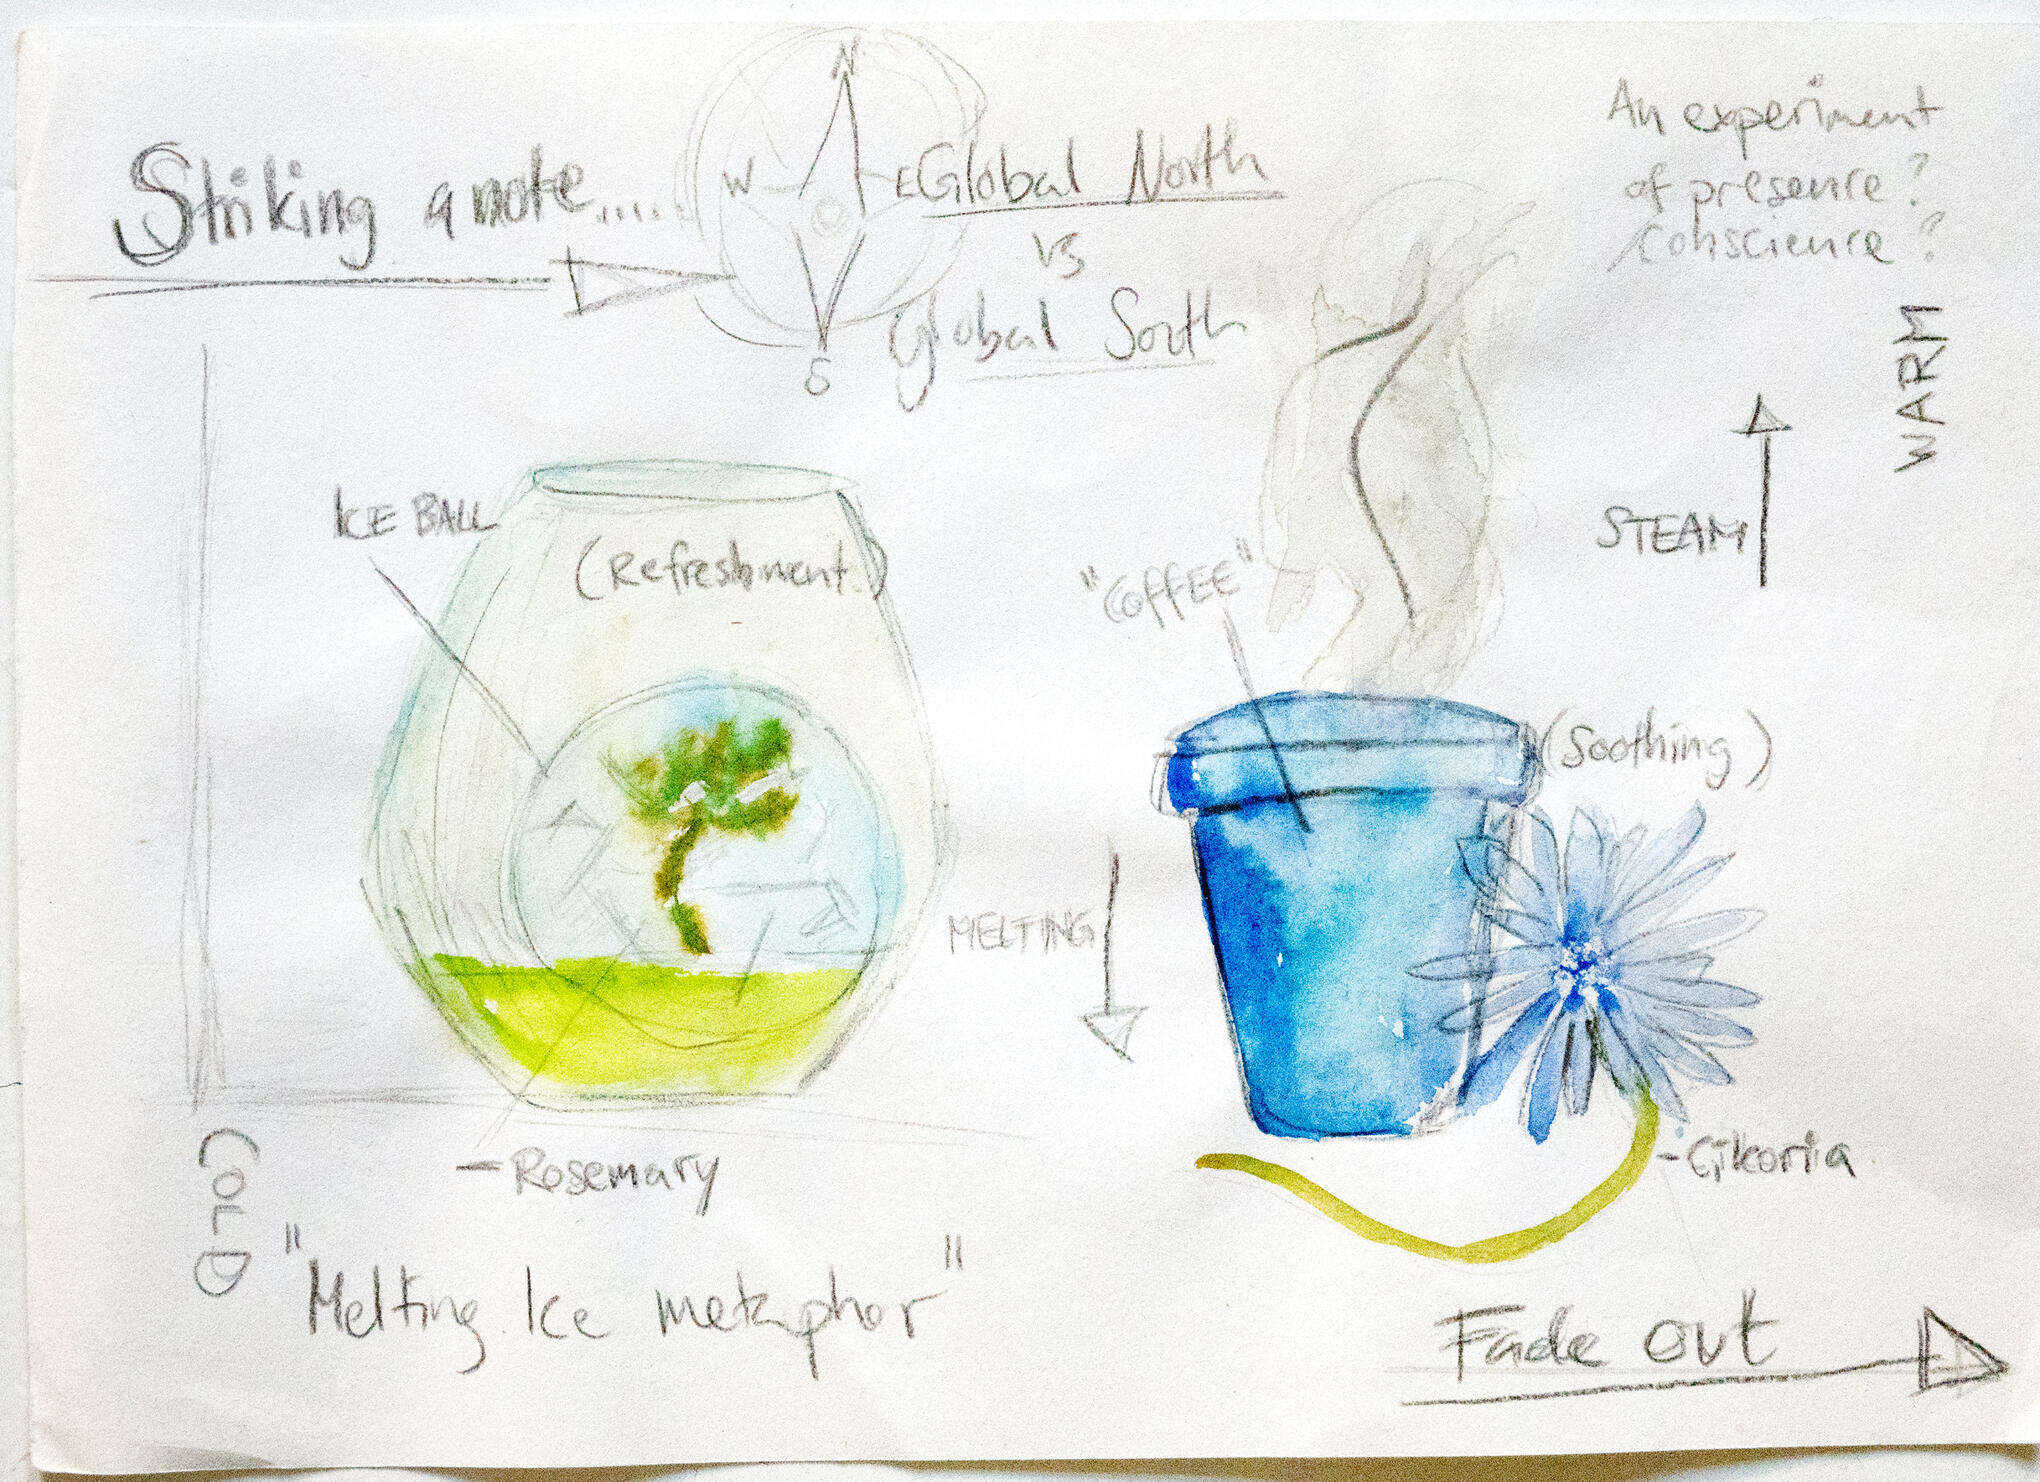 Striking a note.....
N
W
E
S
Global North
vs
Global South
An experiment
of presence?
conscience?
WARM
STEAM
ICE BALL
(Refreshment.)
"COFFEE"
(Soothing)
MELTING
COLD
- Rosemary
- Cikoria
"Melting Ice metaphor"
Fade out